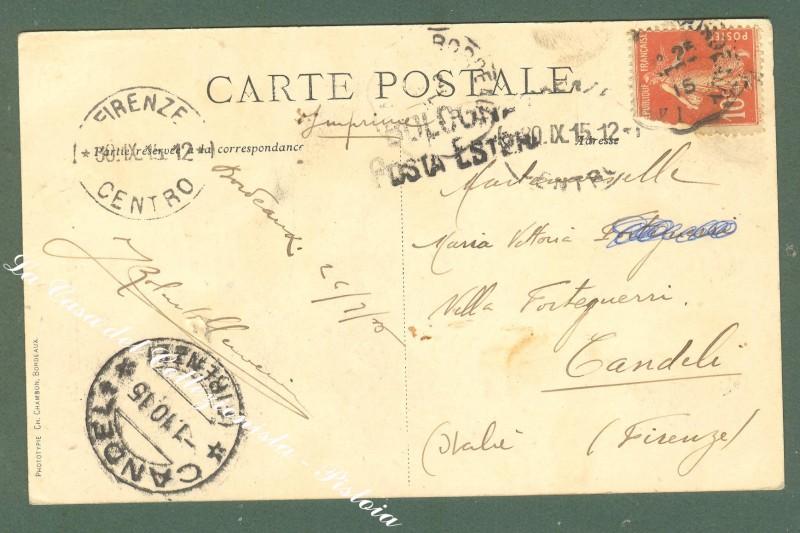 CARTE POSTALE
Imprimé
Partie réservée à la correspondance
Adresse
FIRENZE
30.IX.15.12
CENTRO
BOLOGNA
POSTA ESTERA
30.IX.15.12
CENTR
BORDEAUX
25
15
RÉPUBLIQUE FRANÇAISE
POSTES
10
Bordeaux
Mademoiselle
Maria Vittoria
Villa Forteguerri.
Candeli
(Italie) (Firenze)
CANDELI
(FIRENZE)
-1.10.15
PHOTOTYPIE CH. CHAMBON, BORDEAUX.
La Casa del Collezionista - Pistoia